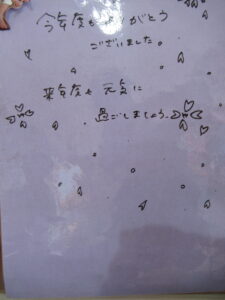 今年度もありがとう
ございました。
来年度も元気に
過ごしましょう。